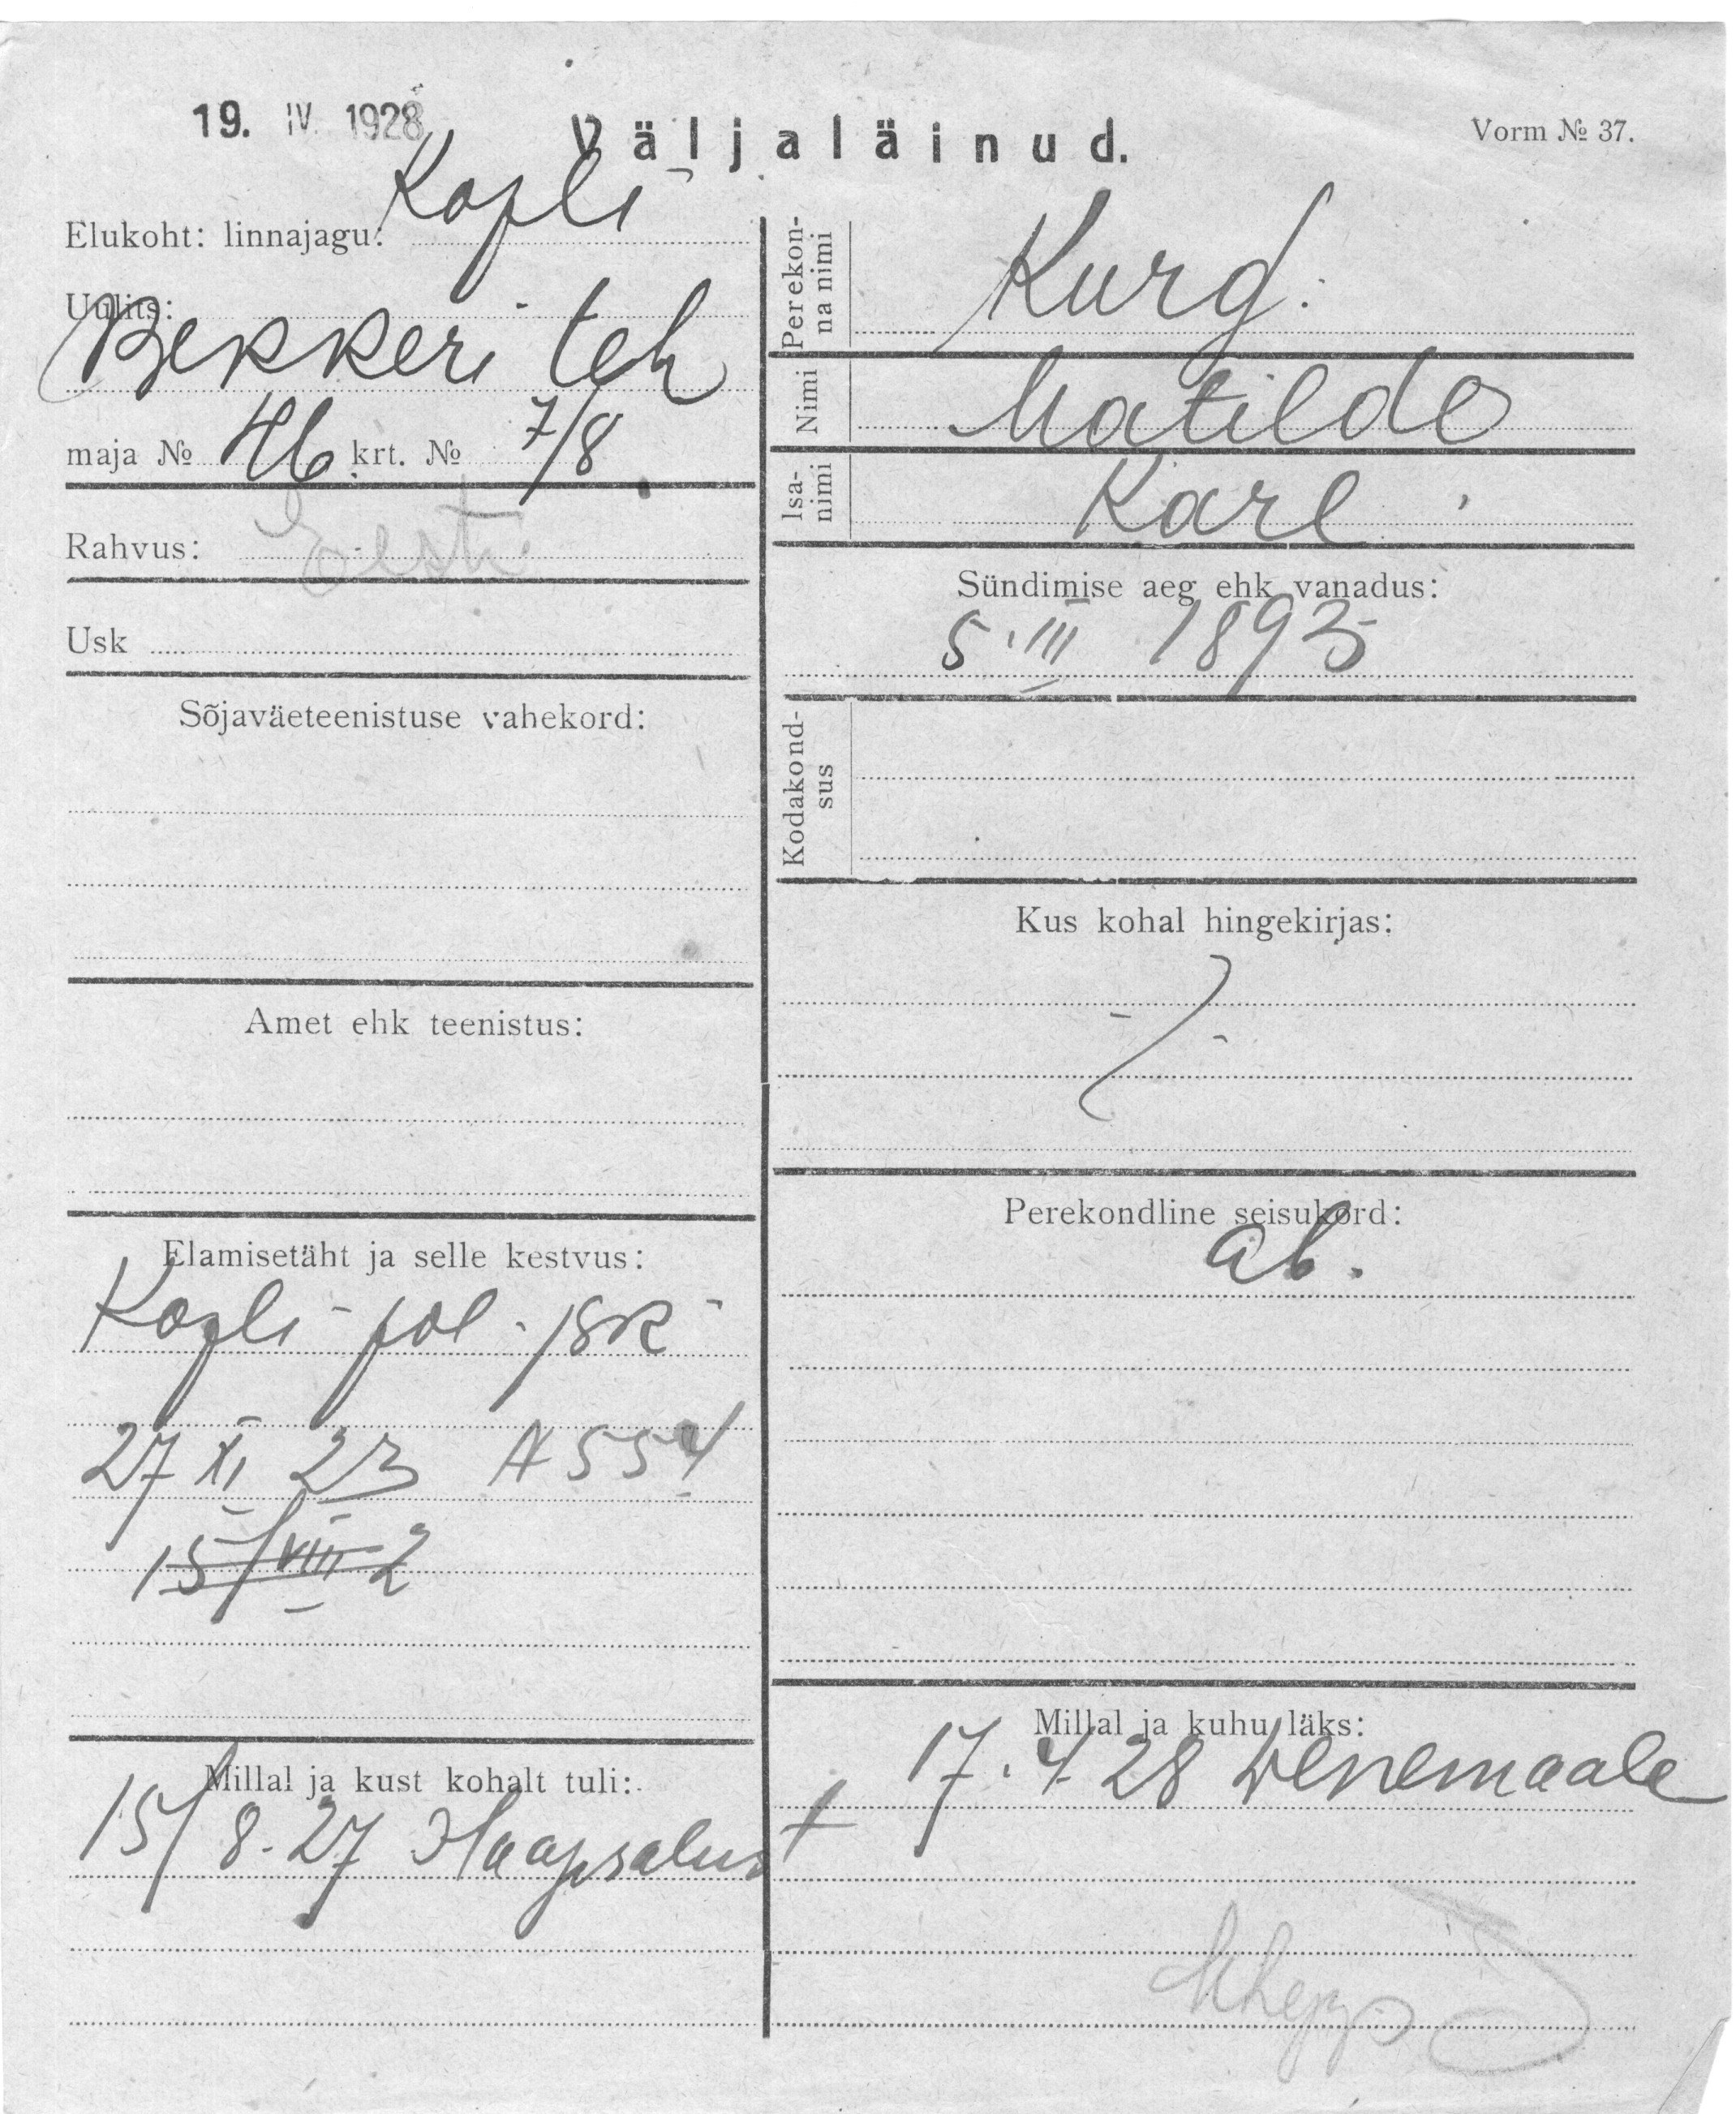 19. IV. 1928
Väljaläinud.
Vorm № 37.
Elukoht: linnajagu: Kopli
Uulits:
Bekkeri teh
maja № 46. krt. № 7/8
Rahvus: Eesti
Usk
Sõjaväeteenistuse vahekord:
Amet ehk teenistus:
Elamisetäht ja selle kestvus:
Kopli pol. jsk
27 XI 23 № 554
15/VIII 2
Millal ja kust kohalt tuli:
15/8. 27 Haapsalus
Perekonna nimi Kurg.
Nimi Matilde
Isanimi Karl
Sündimise aeg ehk vanadus:
5. III 1893
Kodakondsus
Kus kohal hingekirjas:
Perekondline seisukord:
ab.
Millal ja kuhu läks:
17. 4 28 Wenemaale